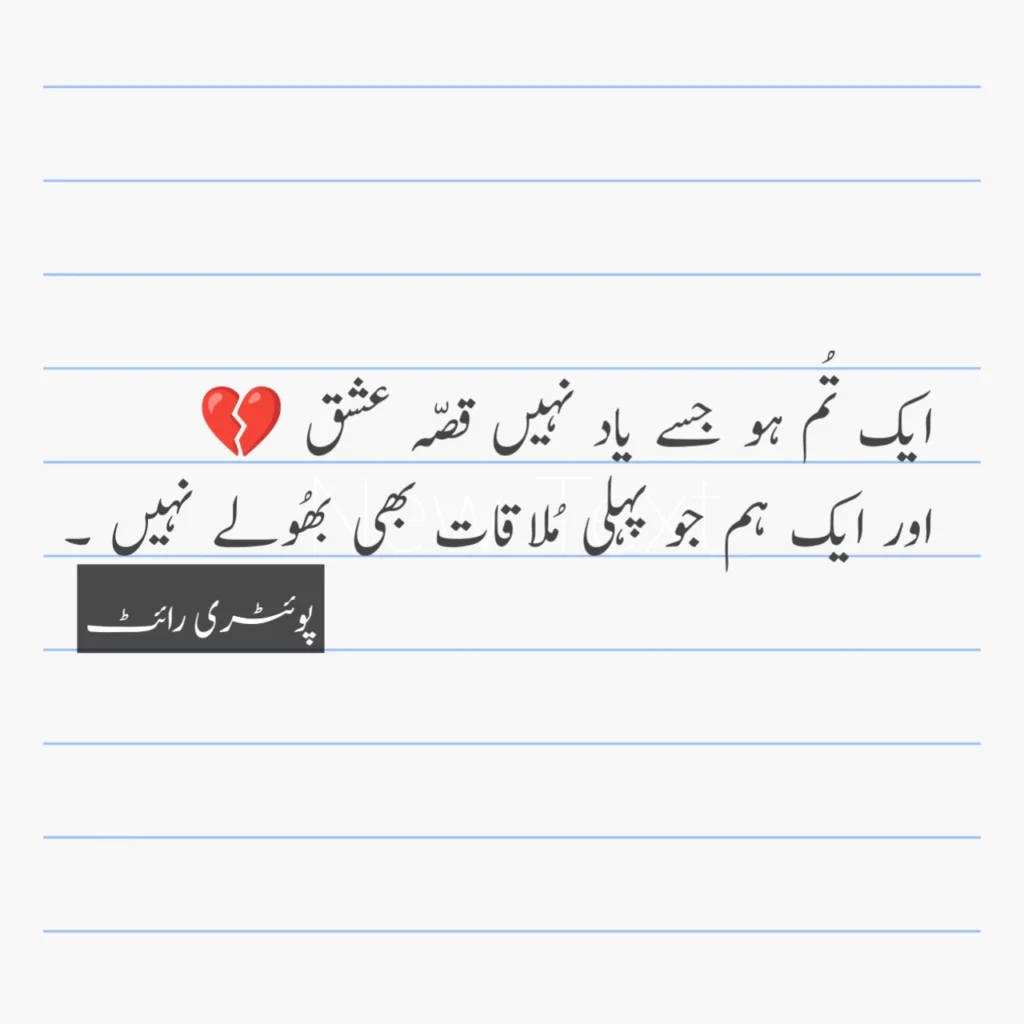 ایک تُم ہو جسے یاد نہیں قصّہ عشق 💔
اور ایک ہم جو پہلی مُلاقات بھی بھُولے نہیں ۔
New Text
پوئٹری رائٹ